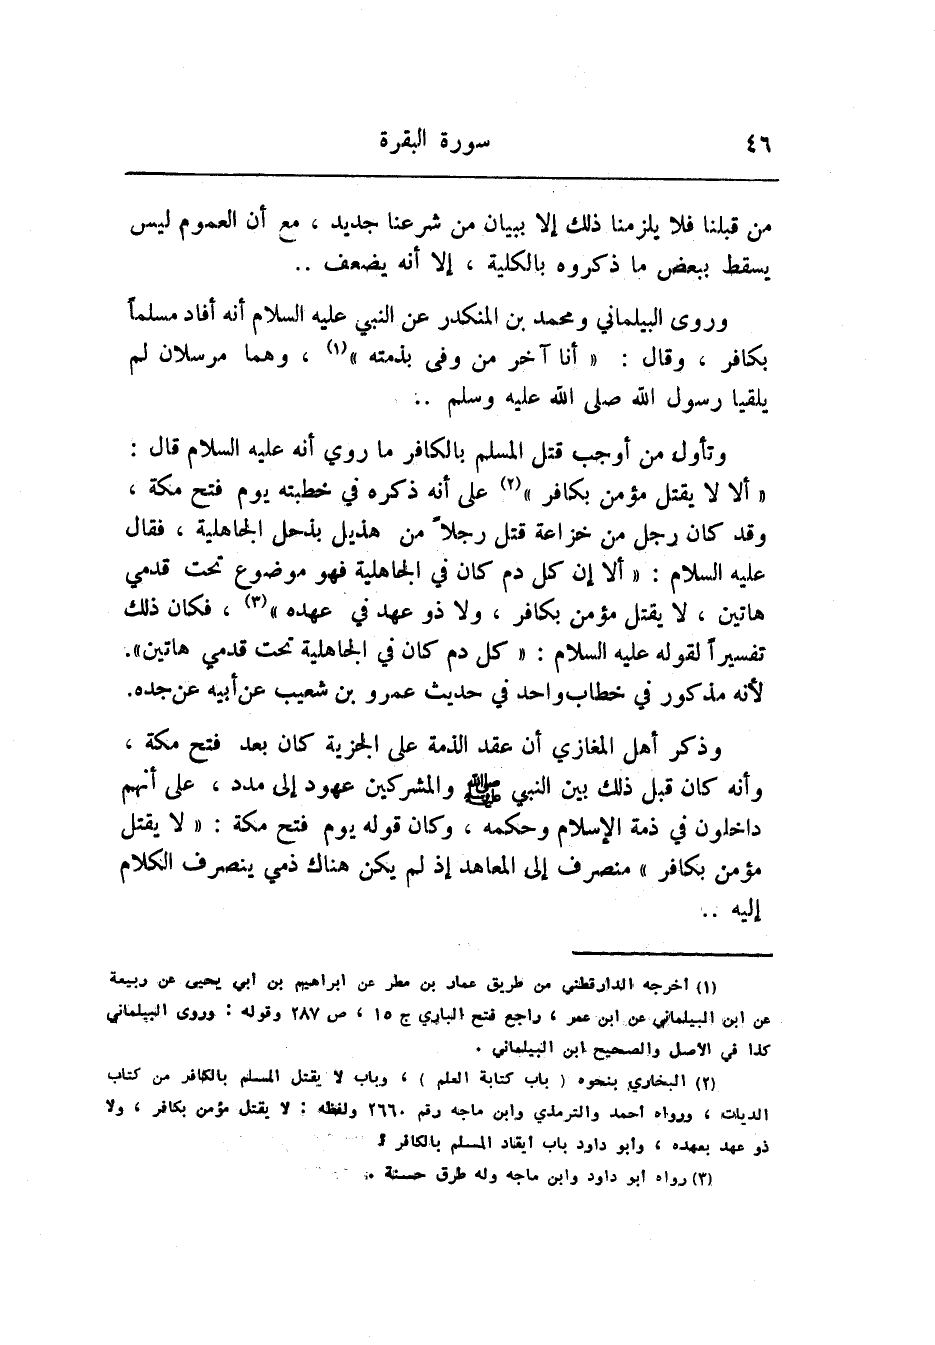 ٤٦ سورة البقرة
من قبلنا فلا يلزمنا ذلك إلا ببيان من شرعنا جديد ، مع أن العموم ليس
يسقط ببعض ما ذكروه بالكلية ، إلا أنه يضعف ..
وروى البيلماني ومحمد بن المنكدر عن النبي عليه السلام أنه أفاد مسلماً
بكافر ، وقال : « أنا آخر من وفى بذمته »(١) ، وهما مرسلان لم
يلقيا رسول الله صلى الله عليه وسلم ..
وتأول من أوجب قتل المسلم بالكافر ما روي أنه عليه السلام قال :
« ألا لا يقتل مؤمن بكافر »(٢) على أنه ذكره في خطبته يوم فتح مكة ،
وقد كان رجل من خزاعة قتل رجلاً من هذيل بذحل الجاهلية ، فقال
عليه السلام : « ألا إن كل دم كان في الجاهلية فهو موضوع تحت قدمي
هاتين ، لا يقتل مؤمن بكافر ، ولا ذو عهد في عهده »(٣) ، فكان ذلك
تفسيراً لقوله عليه السلام : « كل دم كان في الجاهلية تحت قدمي هاتين».
لأنه مذكور في خطاب واحد في حديث عمرو بن شعيب عن أبيه عن جده.
وذكر أهل المغازي أن عقد الذمة على الجزية كان بعد فتح مكة ،
وأنه كان قبل ذلك بين النبي ﷺ والمشركين عهود إلى مدد ، على أنهم
داخلون في ذمة الإسلام وحكمه ، وكان قوله يوم فتح مكة : « لا يقتل
مؤمن بكافر » منصرف إلى المعاهد إذ لم يكن هناك ذمي ينصرف الكلام
إليه ..
(١) أخرجه الدارقطني من طريق عمار بن مطر عن ابراهيم بن أبي يحيى عن ربيعة
عن ابن البيلماني عن ابن عمر ، راجع فتح الباري ج ١٥ ، ص ٢٨٧ وقوله : وروى البيلماني
كذا في الاصل والصحيح ابن البيلماني .
(٢) البخاري بنحوه ( باب كتابة العلم ) ، وباب لا يقتل المسلم بالكافر من كتاب
الديات ، ورواه احمد والترمذي وابن ماجه رقم ٢٦٦٠ ولفظه : لا يقتل مؤمن بكافر ، ولا
ذو عهد بعهده ، وأبو داود باب أيقاد المسلم بالكافر ؟
(٣) رواه أبو داود وابن ماجه وله طرق حسنة .